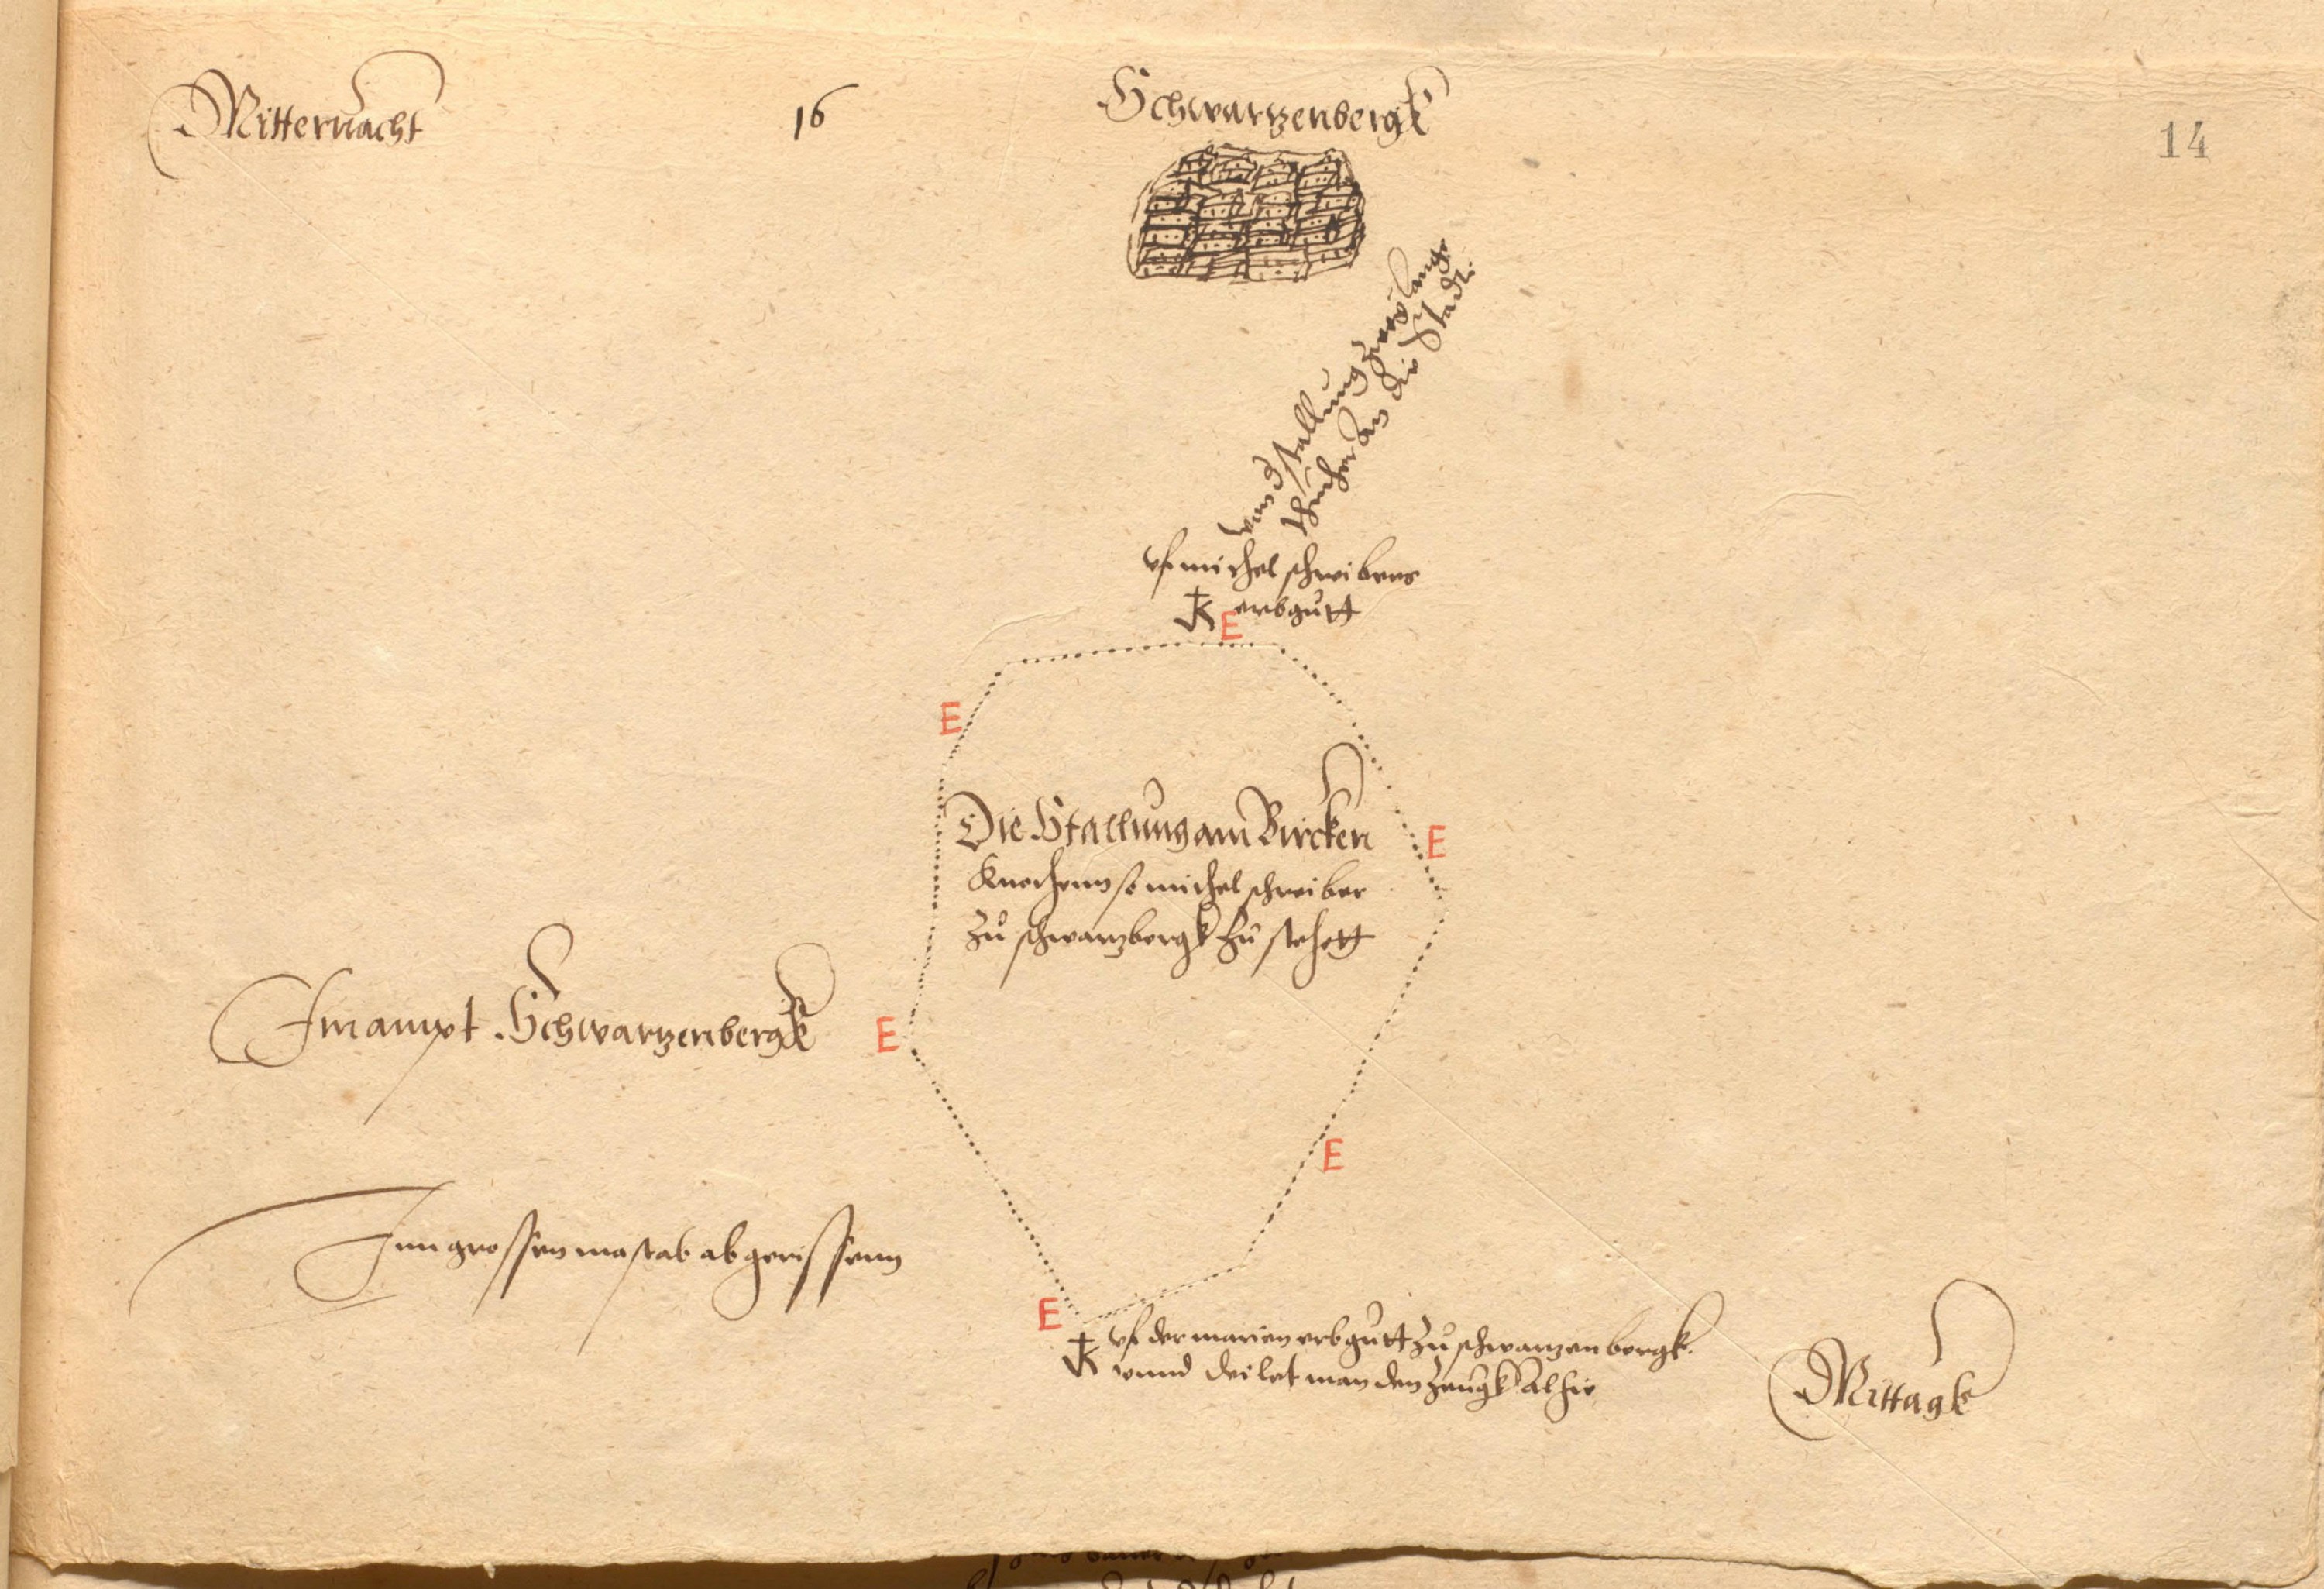 Mitternacht
16
Schwartzenbergk
14
unnd stallung zwo lange
thucher an die Stadt
uf michel schreibers
K erbgutt
E
E
Die Stallung am Bircken
Knochenn so michel schreiber
zu schwarzbergk zu stehett
E
Im ampt Schwartzenbergk
E
E
Inn grossen mastab abgerissenn
E
K uf der marien erbgutt zu schwarzenbergk
unnd deilet man den Zeugk alhie
Mittagk